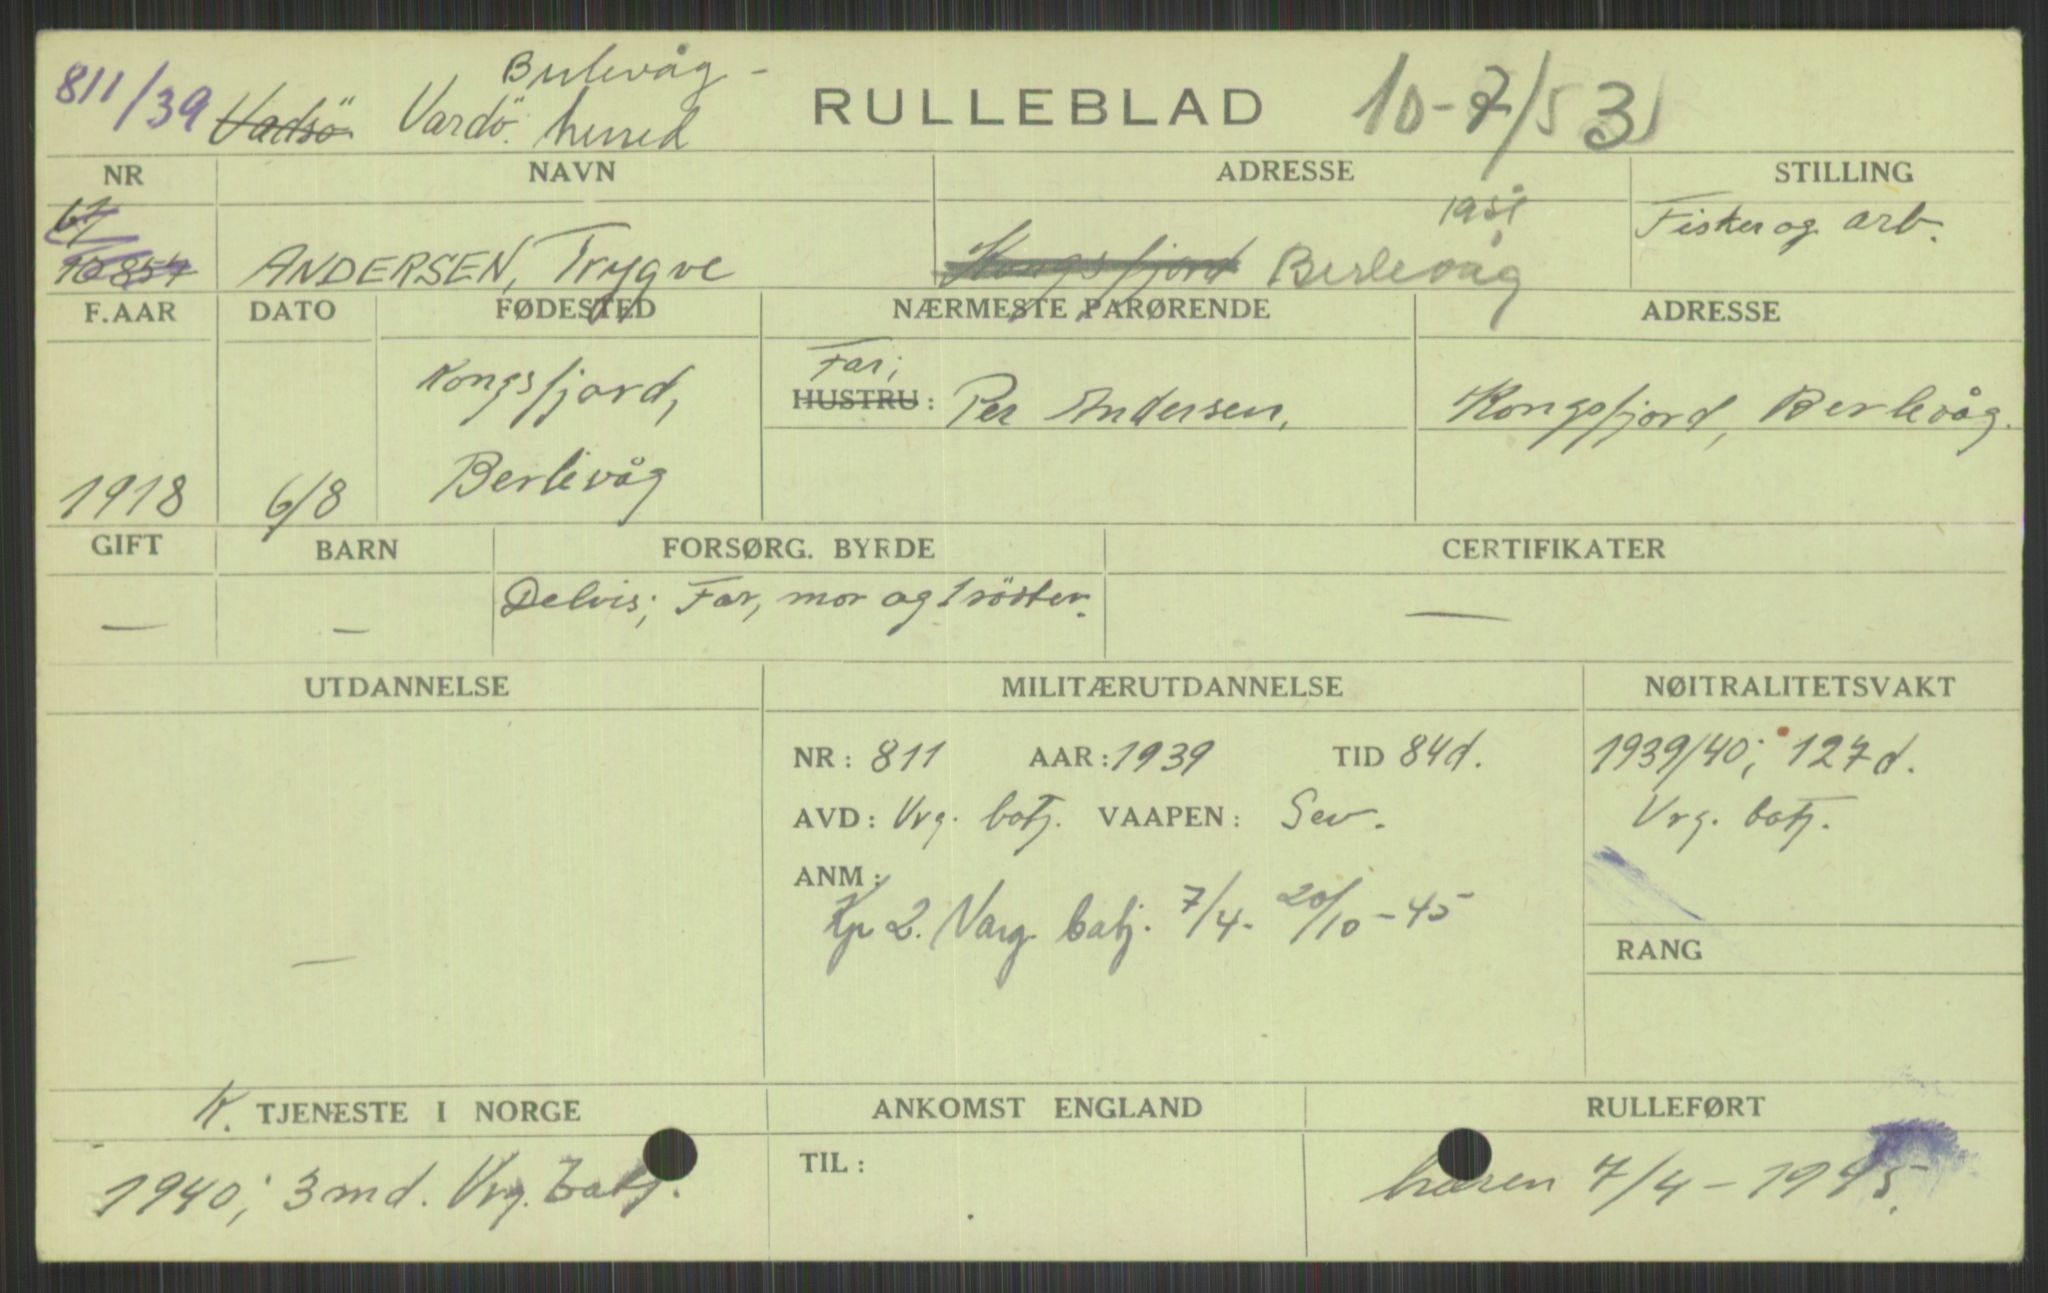 811/39 Vadsö Vardö. herred Berlevåg - RULLEBLAD 10-7/53
NR NAVN ADRESSE STILLING
67 10857 ANDERSEN, Trygve Kongsfjord 1951 Berlevåg Fisker og arb.
F.AAR DATO FØDESTED NÆRMESTE PARØRENDE ADRESSE
Kongsfjord, Far; HUSTRU: Per Andersen, Kongsfjord, Berlevåg.
1918 6/8 Berlevåg
GIFT BARN FORSØRG. BYRDE CERTIFIKATER
— — Delvis; Far, mor og 1 söster. —
UTDANNELSE MILITÆRUTDANNELSE NØITRALITETSVAKT
NR: 811 AAR: 1939 TID 84d. 1939/40; 127d.
AVD: Vrg. batj. VAAPEN: Sev. Vrg. batj.
ANM:
— Kp 2. Varg. batj. 7/4 - 20/10-45
RANG
K. TJENESTE I NORGE ANKOMST ENGLAND RULLEFØRT
1940; 3 md. Vrg. batj. TIL: hæren 7/4-1945.